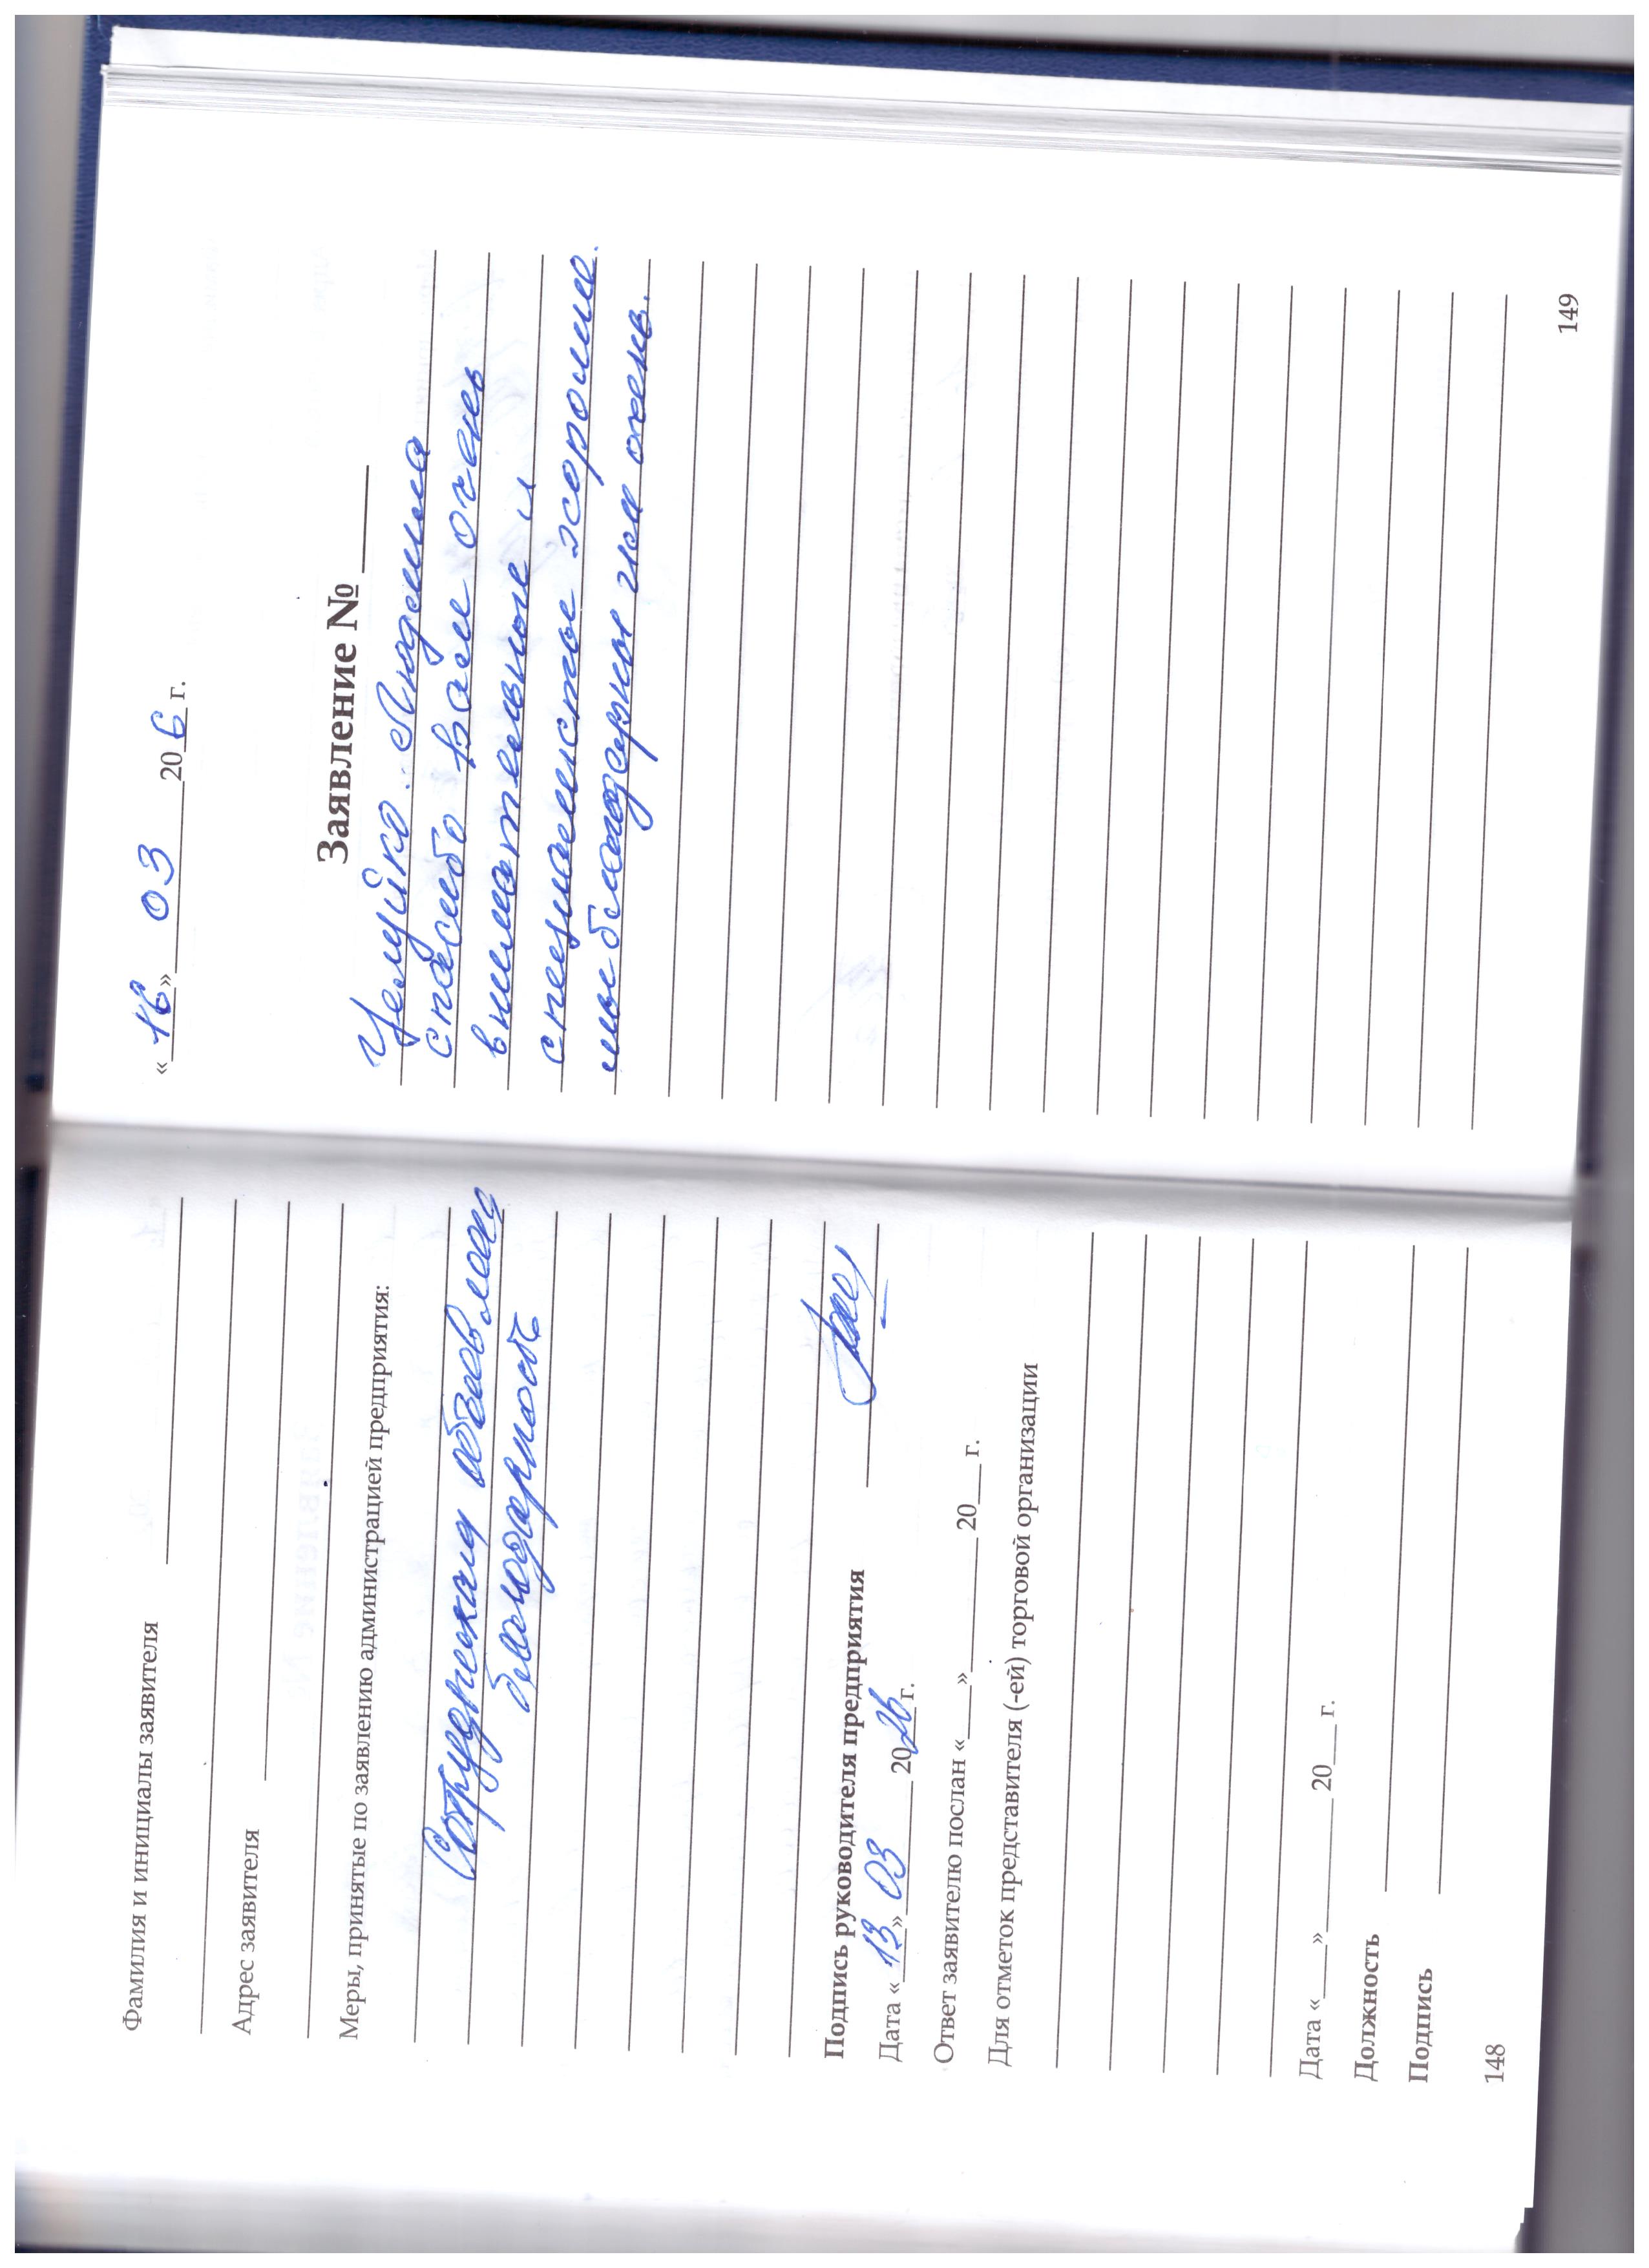 Фамилия и инициалы заявителя
Адрес заявителя
Меры, принятые по заявлению администрацией предприятия:
Сотруднекам объявлена
благодарность
Подпись руководителя предприятия
Дата « 13 » 03 2026 г.
Ответ заявителю послан «___» ______ 20___ г.
Для отметок представителя (-ей) торговой организации
Дата «___» ______ 20___ г.
Должность
Подпись
148
« 16 » 03 20 6 г.
Заявление № ____
Людмила
спасибо Вам очень
внимательные и
специалисты хорошие.
мы благодарны им очень.
149